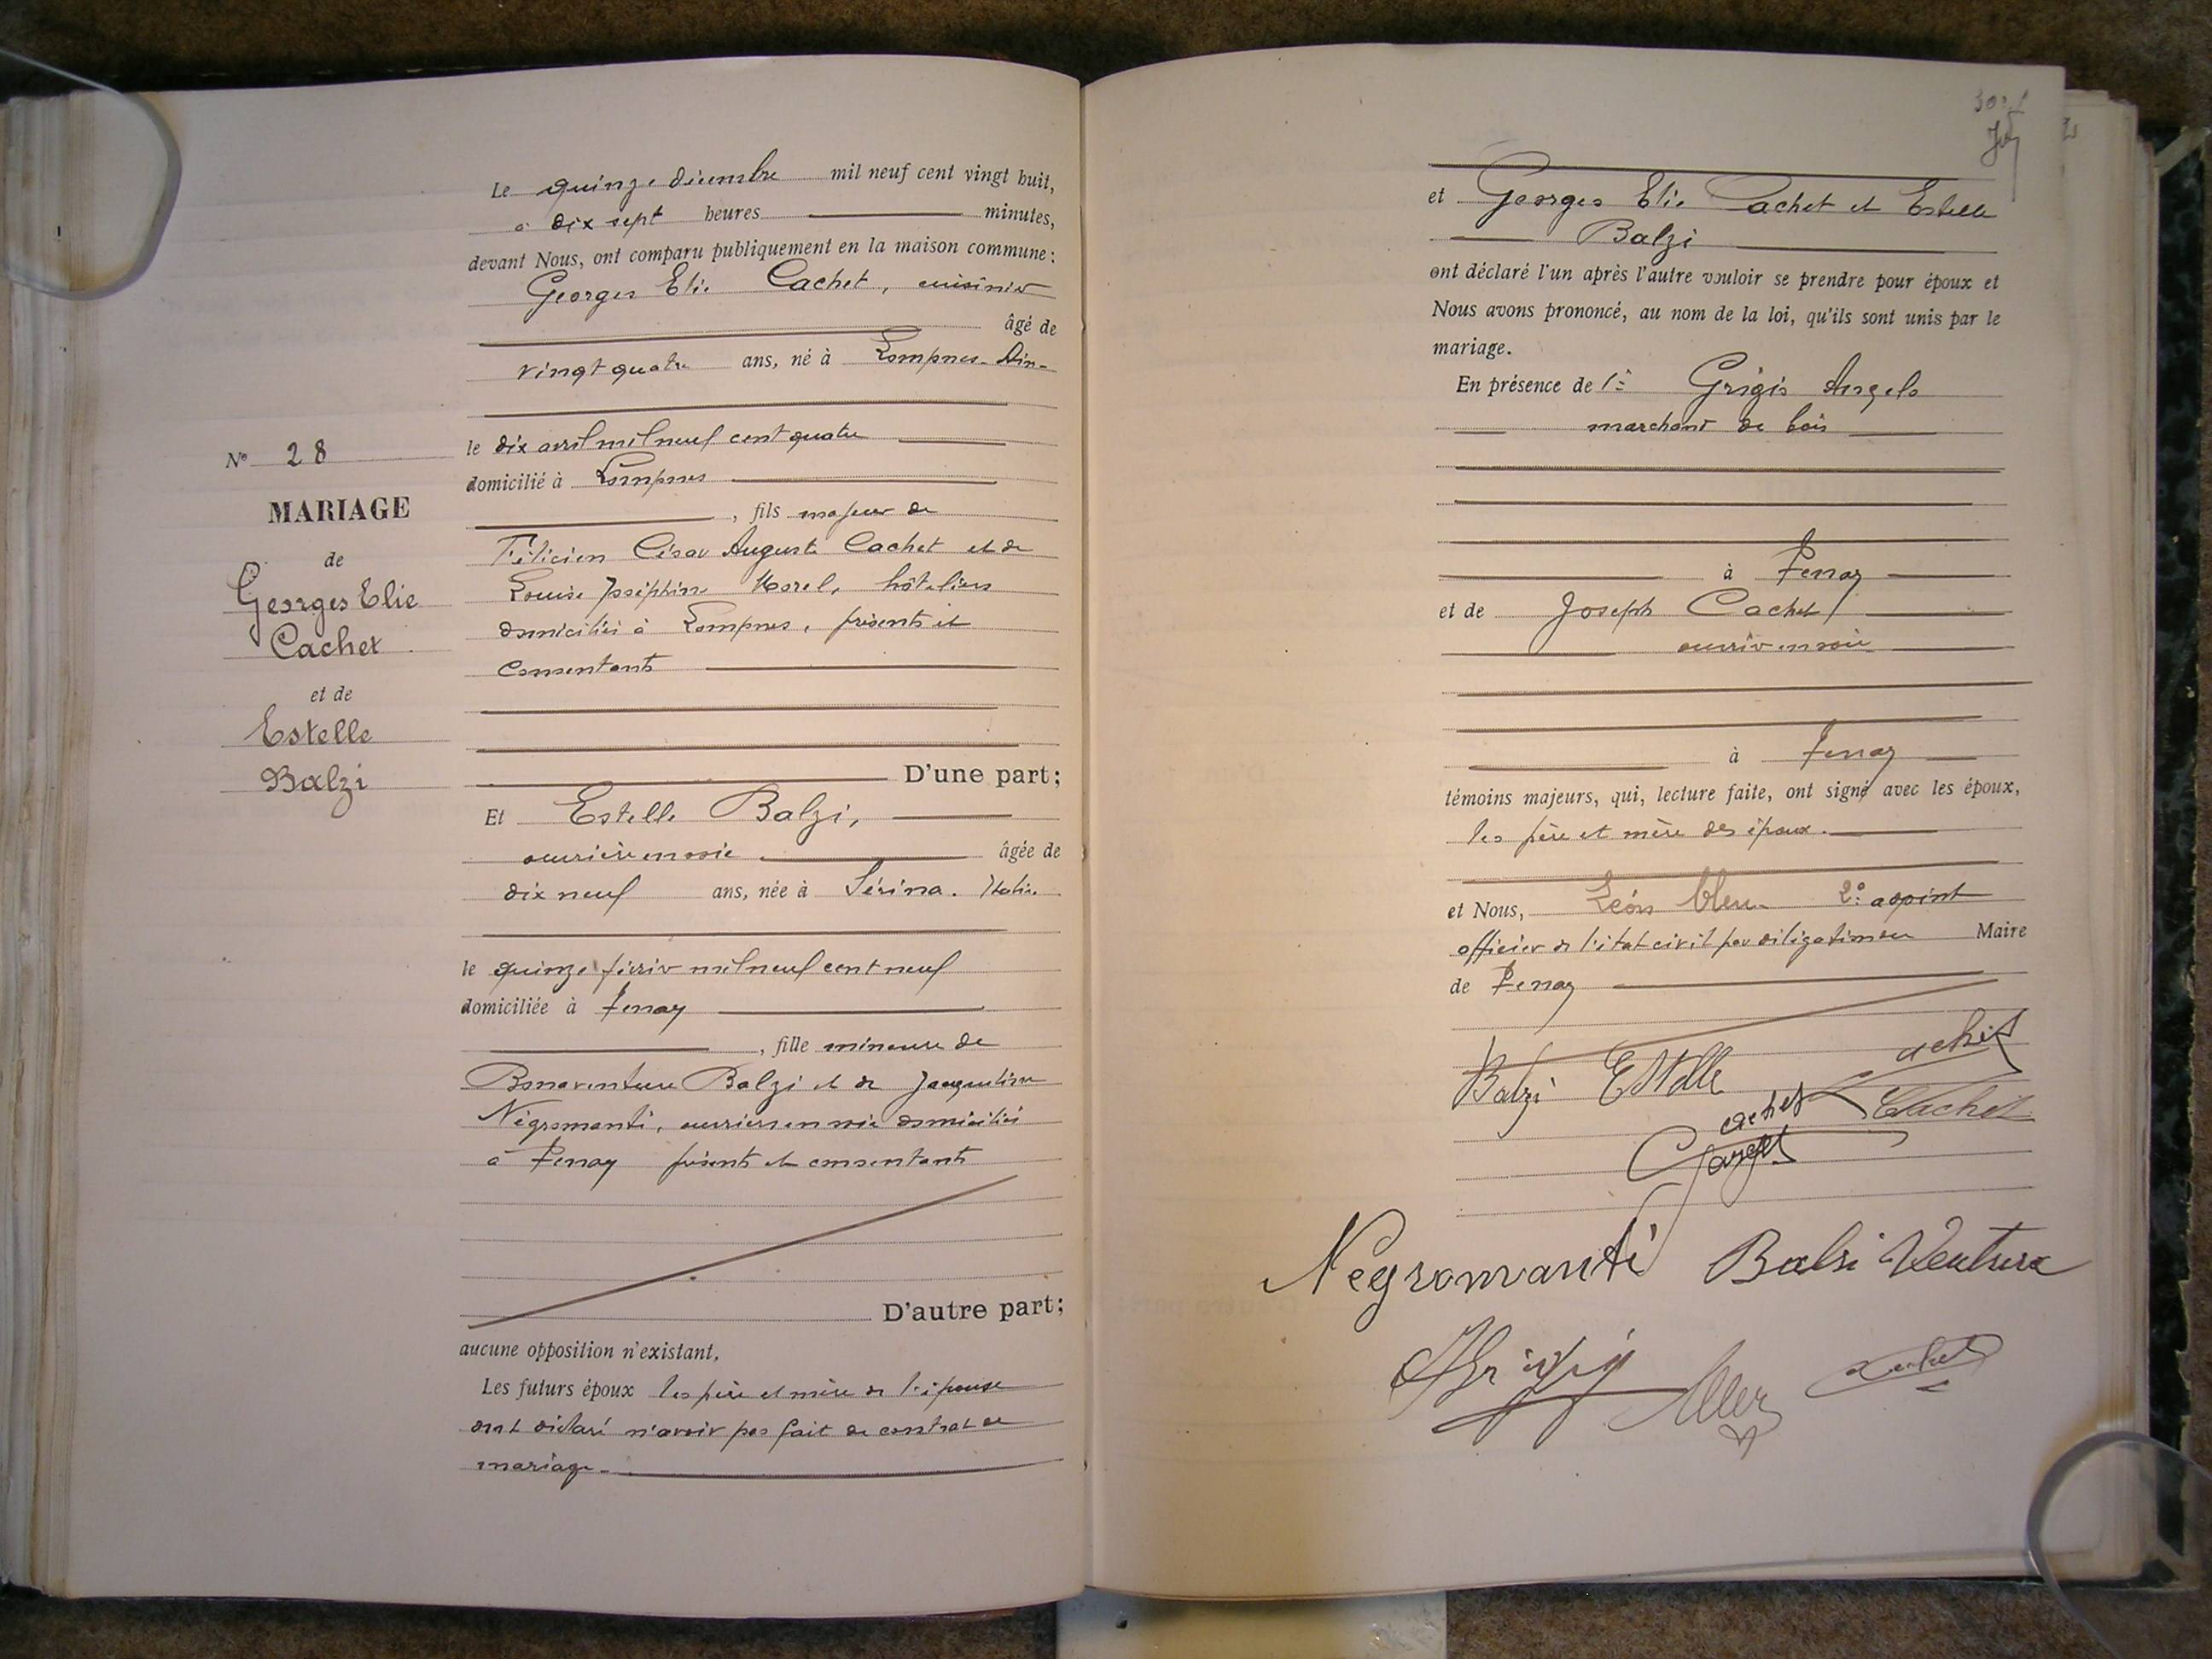 Le quinze décembre mil neuf cent vingt huit,
à dix sept heures minutes,
devant Nous, ont comparu publiquement en la maison commune :
Georges Elie Cachet, cuisinier
âgé de
vingt quatre ans, né à Lompnes - Ain -
le dix avril mil neuf cent quatre
domicilié à Lompnes
, fils majeur de
Félicien César Auguste Cachet et de
Louise Joséphine Morel, hôteliers
domiciliés à Lompnes, présents et
consentants
D'une part;
Et Estelle Balzi,
ouvrière en soie âgée de
dix neuf ans, née à Sérina. Italie
le quinze février mil neuf cent neuf
domiciliée à Tenay
, fille mineure de
Bonaventure Balzi et de Jacqueline
Négromanti, ouvriers en soie domiciliés
à Tenay présents et consentants
D'autre part;
aucune opposition n'existant,
Les futurs époux les père et mère de l'épouse
ont déclaré n'avoir pas fait de contrat de
mariage.
N° 28
MARIAGE
de
Georges Elie
Cachet
et de
Estelle
Balzi
et Georges Elie Cachet et Estelle
Balzi
ont déclaré l'un après l'autre vouloir se prendre pour époux et
Nous avons prononcé, au nom de la loi, qu'ils sont unis par le
mariage.
En présence de 1° Grigis Angelo
marchand de bois
à Tenay
et de Joseph Cachet
ouvrier en soie
à Tenay
témoins majeurs, qui, lecture faite, ont signé avec les époux,
les père et mère des époux.
et Nous, Léon 2° adjoint
officier de l'état civil par délégation du Maire
de Tenay
Balzi Estelle Cachet
Cachet Cachet
Georges
Negromanti Balsi Ventura